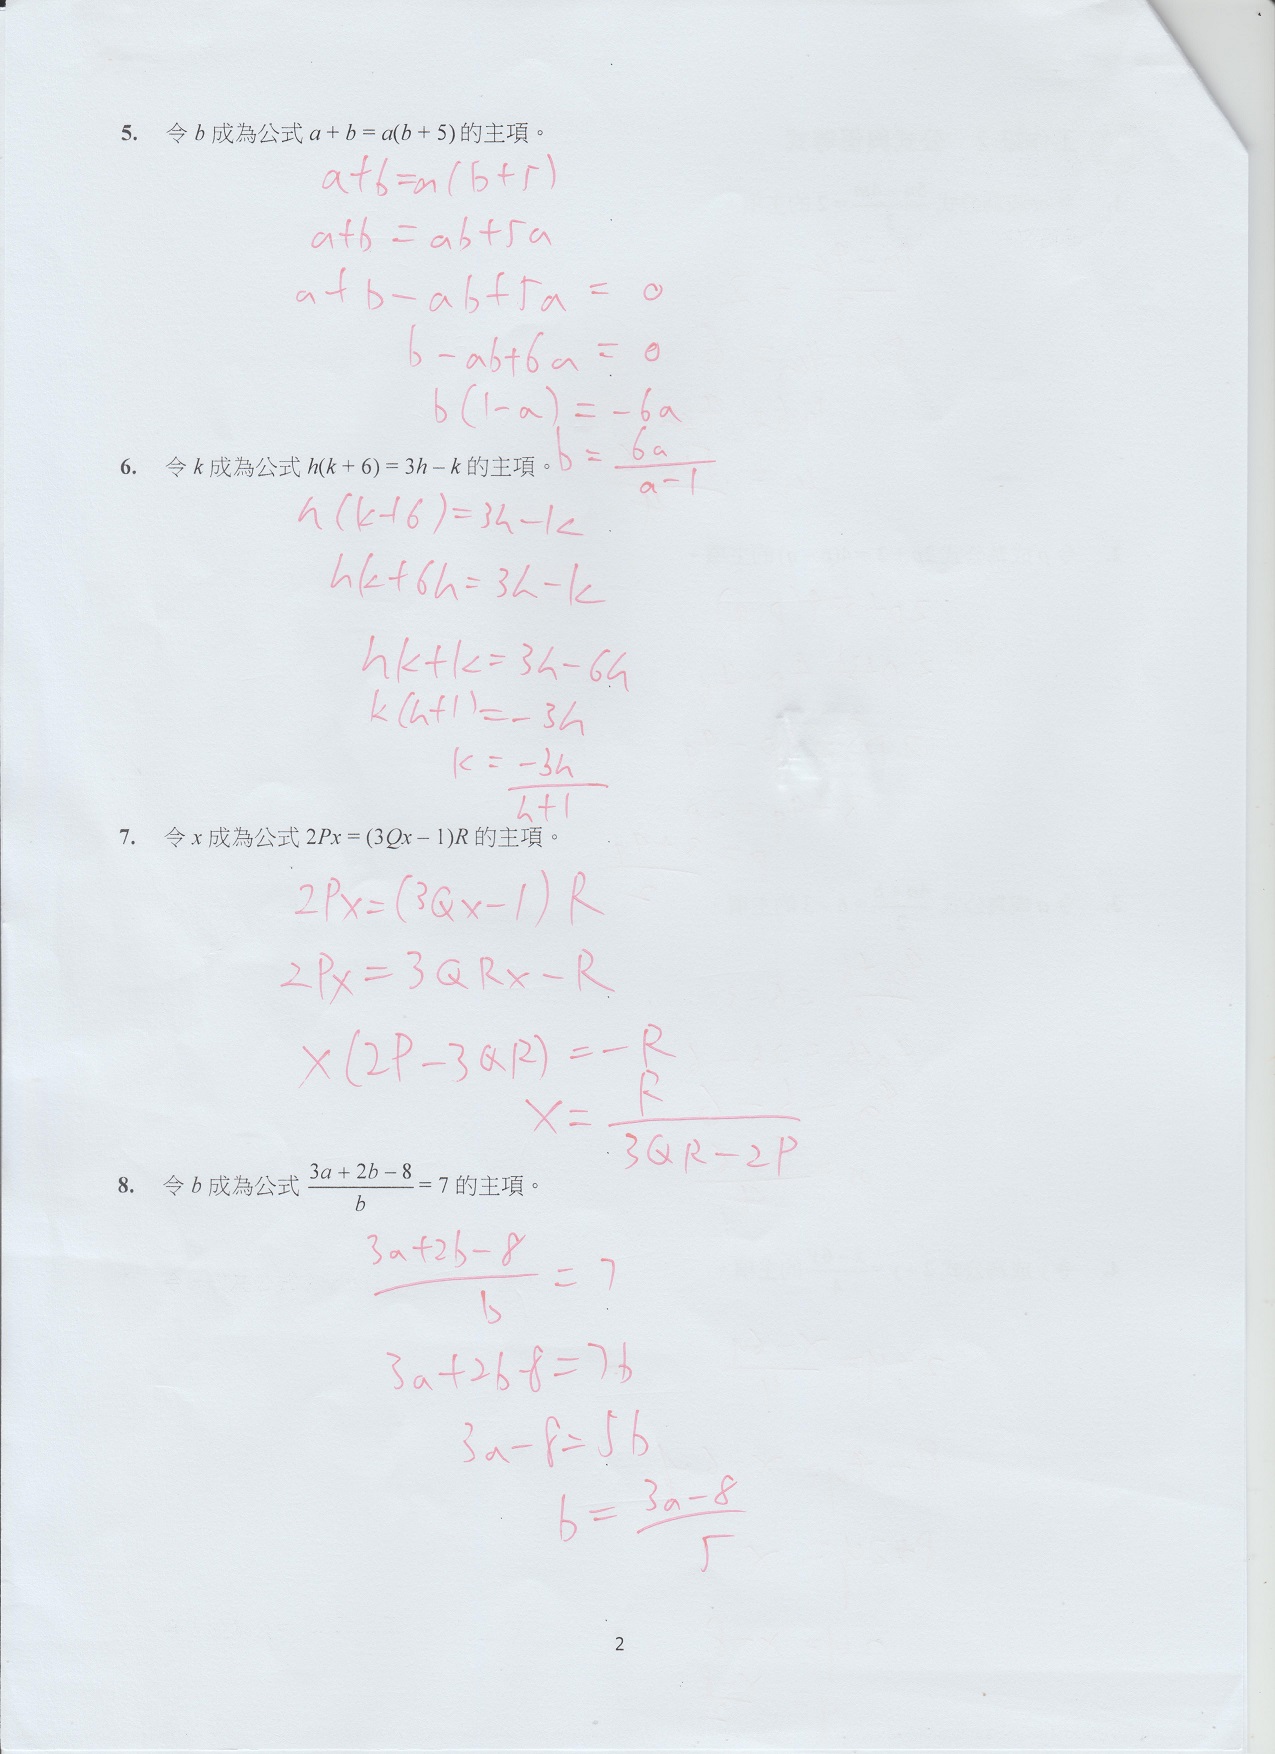 5. 令 b 成為公式 a + b = a(b + 5) 的主項。
a+b=a(b+5)
a+b = ab+5a
a+b-ab+5a = 0
b-ab+6a = 0
b(1-a) = -6a
b = 6a/(a-1)
6. 令 k 成為公式 h(k + 6) = 3h – k 的主項。
h(k+6)=3h-k
hk+6h=3h-k
hk+k=3h-6h
k(h+1)=-3h
k = -3h/(h+1)
7. 令 x 成為公式 2Px = (3Qx – 1)R 的主項。
2Px=(3Qx-1)R
2Px=3QRx-R
x(2P-3QR)=-R
x= R/(3QR-2P)
8. 令 b 成為公式 (3a + 2b – 8)/b = 7 的主項。
(3a+2b-8)/b = 7
3a+2b-8=7b
3a-8=5b
b = (3a-8)/5
2